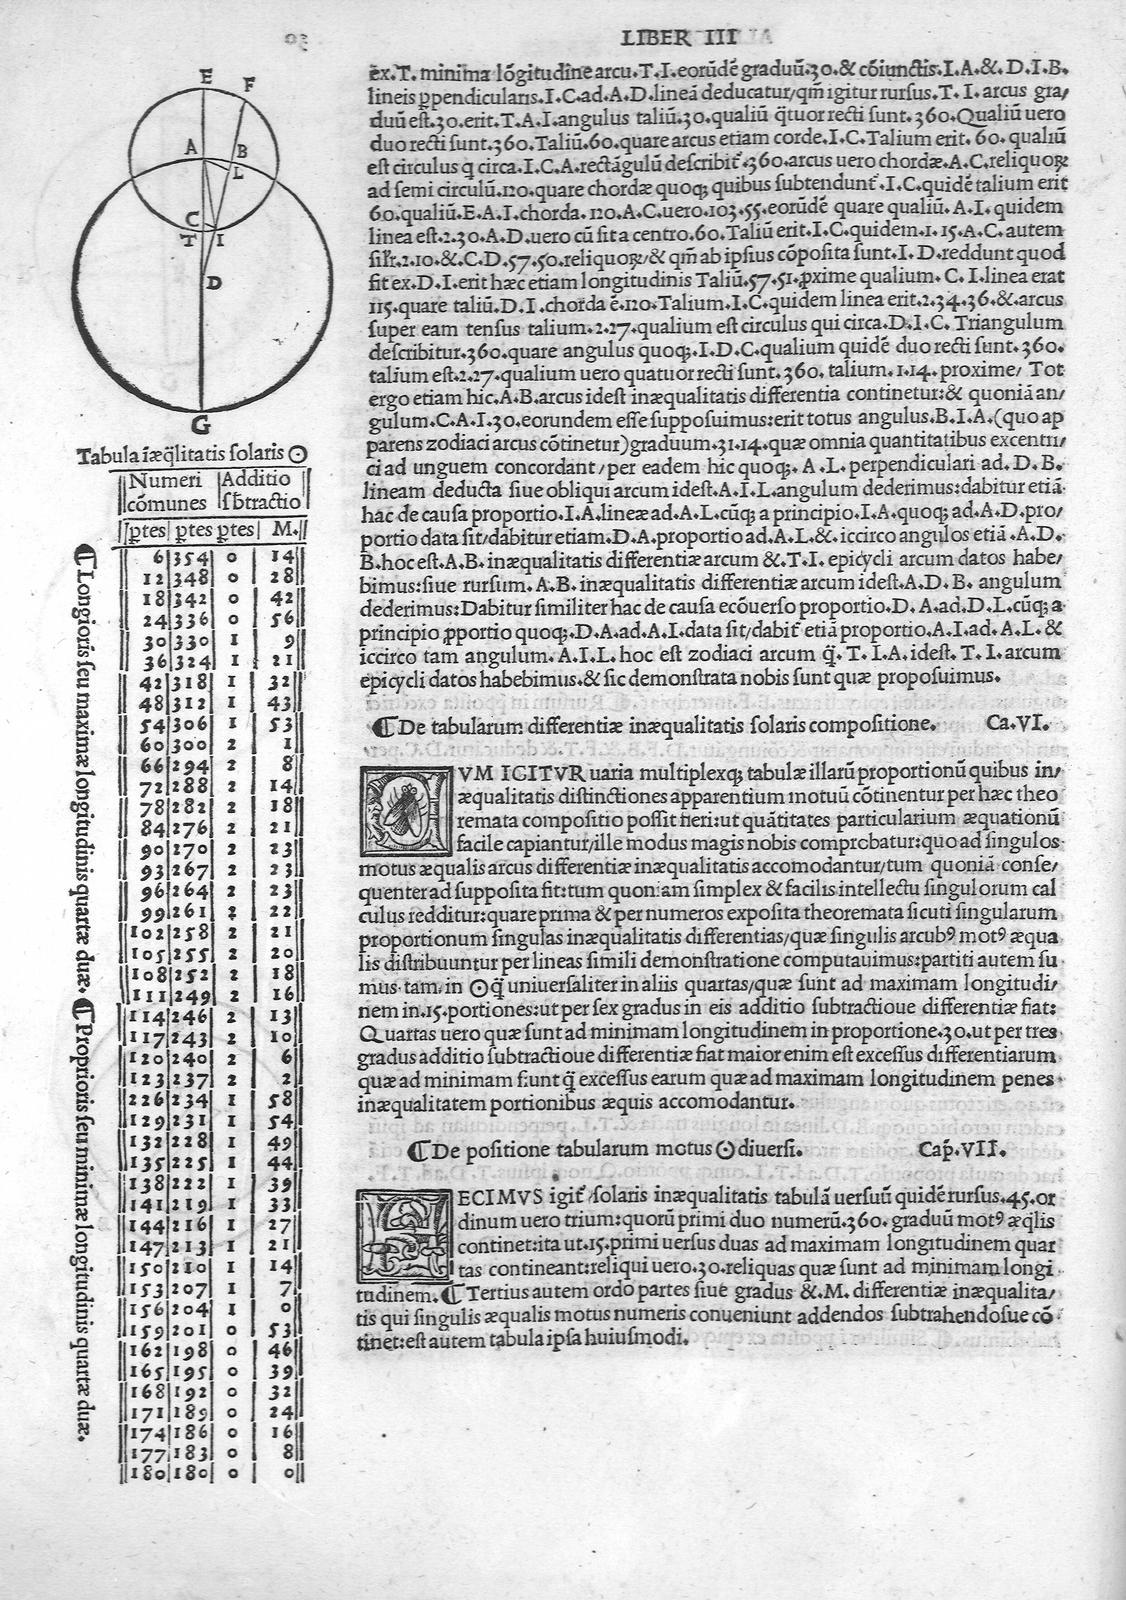 LIBER III
E
F
A
B
L
C
T
I
D
G
Tabula īæq̄litatis solaris ☉
Numeri cōmunes | Additio sb̄tractio
ꝑtes | ꝑtes | ꝑtes | M.
6 354 0 14
12 348 0 28
18 342 0 42
24 336 0 56
30 330 1 9
36 324 1 21
42 318 1 32
48 312 1 43
54 306 1 53
60 300 2 1
66 294 2 8
72 288 2 14
78 282 2 18
84 276 2 21
90 270 2 23
93 267 2 23
96 264 2 23
99 261 2 22
102 258 2 21
105 255 2 20
108 252 2 18
111 249 2 16
114 246 2 13
117 243 2 10
120 240 2 6
123 237 2 2
226 234 1 58
129 231 1 54
132 228 1 49
135 225 1 44
138 222 1 39
141 219 1 33
144 216 1 27
147 213 1 21
150 210 1 14
153 207 1 7
156 204 1 0
159 201 0 53
162 198 0 46
165 195 0 39
168 192 0 32
171 189 0 24
174 186 0 16
177 183 0 8
180 180 0 0
¶ Longioris seu maximæ longitudinis quartæ duæ. ¶ Proprioris seu minimæ longitudinis quartæ duæ.
ēx.T. minima lōgitudine arcu.T.I.eorūdē graduū.30.& cōiunctis.I.A.&.D.I.B.
lineis ꝑpendicularis.I.C.ad.A.D.lineā deducatur/qm̄ igitur rursus.T.I. arcus gra/
duū est.30.erit.T.A.I.angulus taliū.30.qualiū q̄tuor recti sunt.360.Qualiū uero
duo recti sunt.360.Taliū.60.quare arcus etiam corde.I.C.Talium erit.60.qualiū
est circulus q circa.I.C.A.rectāgulū describit̄.360.arcus uero chordæ.A.C.reliquoꝝ
ad semi circulū.120.quare chordæ quoqꝫ quibus subtendunt̄.I.C.quidē talium erit
60.qualiū.E.A.I.chorda.120.A.C.uero.103.55.eorūdē quare qualiū.A.I.quidem
linea est.2.30.A.D.uero cū sit a centro.60.Taliū erit.I.C.quidem.1.15.A.C.autem
sil̄r.2.10.&.C.D.57.50.reliquoꝝ/& qm̄ ab ipsius cōposita sunt.I.D.reddunt quod
fit ex.D.I.erit hæc etiam longitudinis Taliū.57.51.ꝓxime qualium. C.I.linea erat
115.quare taliū.D.I.chorda ē.120.Talium.I.C.quidem linea erit.2.34.36.& arcus
super eam tensus talium.2.27.qualium est circulus qui circa.D.I.C.Triangulum
describitur.360.quare angulus quoqꝫ.I.D.C.qualium quidē duo recti sunt.360.
talium est.2.27.qualium uero quatuor recti sunt.360.talium.1.14.proxime/ Tot
ergo etiam hic.A.B.arcus idest inæqualitatis differentia continetur:& quoniā an/
gulum.C.A.I.30.eorundem esse supposuimus:erit totus angulus.B.I.A.(quo ap
parens zodiaci arcus cōtinetur)graduum.31.14.quæ omnia quantitatibus excentri/
ci ad unguem concordant/per eadem hic quoqꝫ. A.L.perpendiculari ad.D.B.
lineam deducta siue obliqui arcum idest.A.I.L.angulum dederimus:dabitur etiā
hac de causa proportio.I.A.lineæ ad.A.L.cūqꝫ a principio.I.A.quoqꝫ ad.A.D.pro/
portio data sit/dabitur etiam.D.A.proportio ad.A.L.& iccirco angulos etiā.A.D.
B.hoc est.A.B.inæqualitatis differentiæ arcum &.T.I.epicycli arcum datos habe/
bimus:siue rursum.A.B.inæqualitatis differentiæ arcum idest.A.D.B. angulum
dederimus:Dabitur similiter hac de causa ecōuerso proportio.D.A.ad.D.L.cūqꝫ a
principio ꝓportio quoqꝫ.D.A.ad.A.I.data sit/dabit̄ etiā proportio.A.I.ad.A.L.&
iccirco tam angulum.A.I.L.hoc est zodiaci arcum q̄.T.I.A.idest.T.I.arcum
epicycli datos habebimus.& sic demonstrata nobis sunt quæ proposuimus.
¶ De tabularum differentiæ inæqualitatis solaris compositione. Ca.VI.
VM IGITVR uaria multiplexqꝫ tabulæ illarū proportionū quibus in/
æqualitatis distinctiones apparentium motuū cōtinentur per hæc theo
remata compositio possit fieri:ut quātitates particularium æquationū
facile capiantur/ille modus magis nobis comprobatur:quo ad singulos
motus æqualis arcus differentiæ inæqualitatis accomodantur/tum quoniā conse/
quenter ad supposita fit:tum quoniam simplex & facilis intellectu singulorum cal
culus redditur:quare prima & per numeros exposita theoremata sicuti singularum
proportionum singulas inæqualitatis differentias/quæ singulis arcubꝰ motꝰ æqua
lis distribuuntur per lineas simili demonstratione computauimus:partiti autem su
mus tam in ☉ q̄ uniuersaliter in aliis quartas/quæ sunt ad maximam longitudi/
nem in.15.portiones:ut per sex gradus in eis additio subtractioue differentiæ fiat:
Quartas uero quæ sunt ad minimam longitudinem in proportione.30.ut per tres
gradus additio subtractioue differentiæ fiat maior enim est excessus differentiarum
quæ ad minimam fiunt q̄ excessus earum quæ ad maximam longitudinem penes
inæqualitatem portionibus æquis accomodantur.
¶ De positione tabularum motus ☉ diuersi. Cap̄.VII.
ECIMVS igit̄ solaris inæqualitatis tabulā uersuū quidē rursus.45.or
dinum uero trium:quorū primi duo numerū.360.graduū motꝰ æq̄lis
continet:ita ut.15.primi uersus duas ad maximam longitudinem quar
tas contineant:reliqui uero.30.reliquas quæ sunt ad minimam longi
tudinem. ¶ Tertius autem ordo partes siue gradus &.M.differentiæ inæqualita/
tis qui singulis æqualis motus numeris conueniunt addendos subtrahendosue cō
tinet:est autem tabula ipsa huiusmodi.